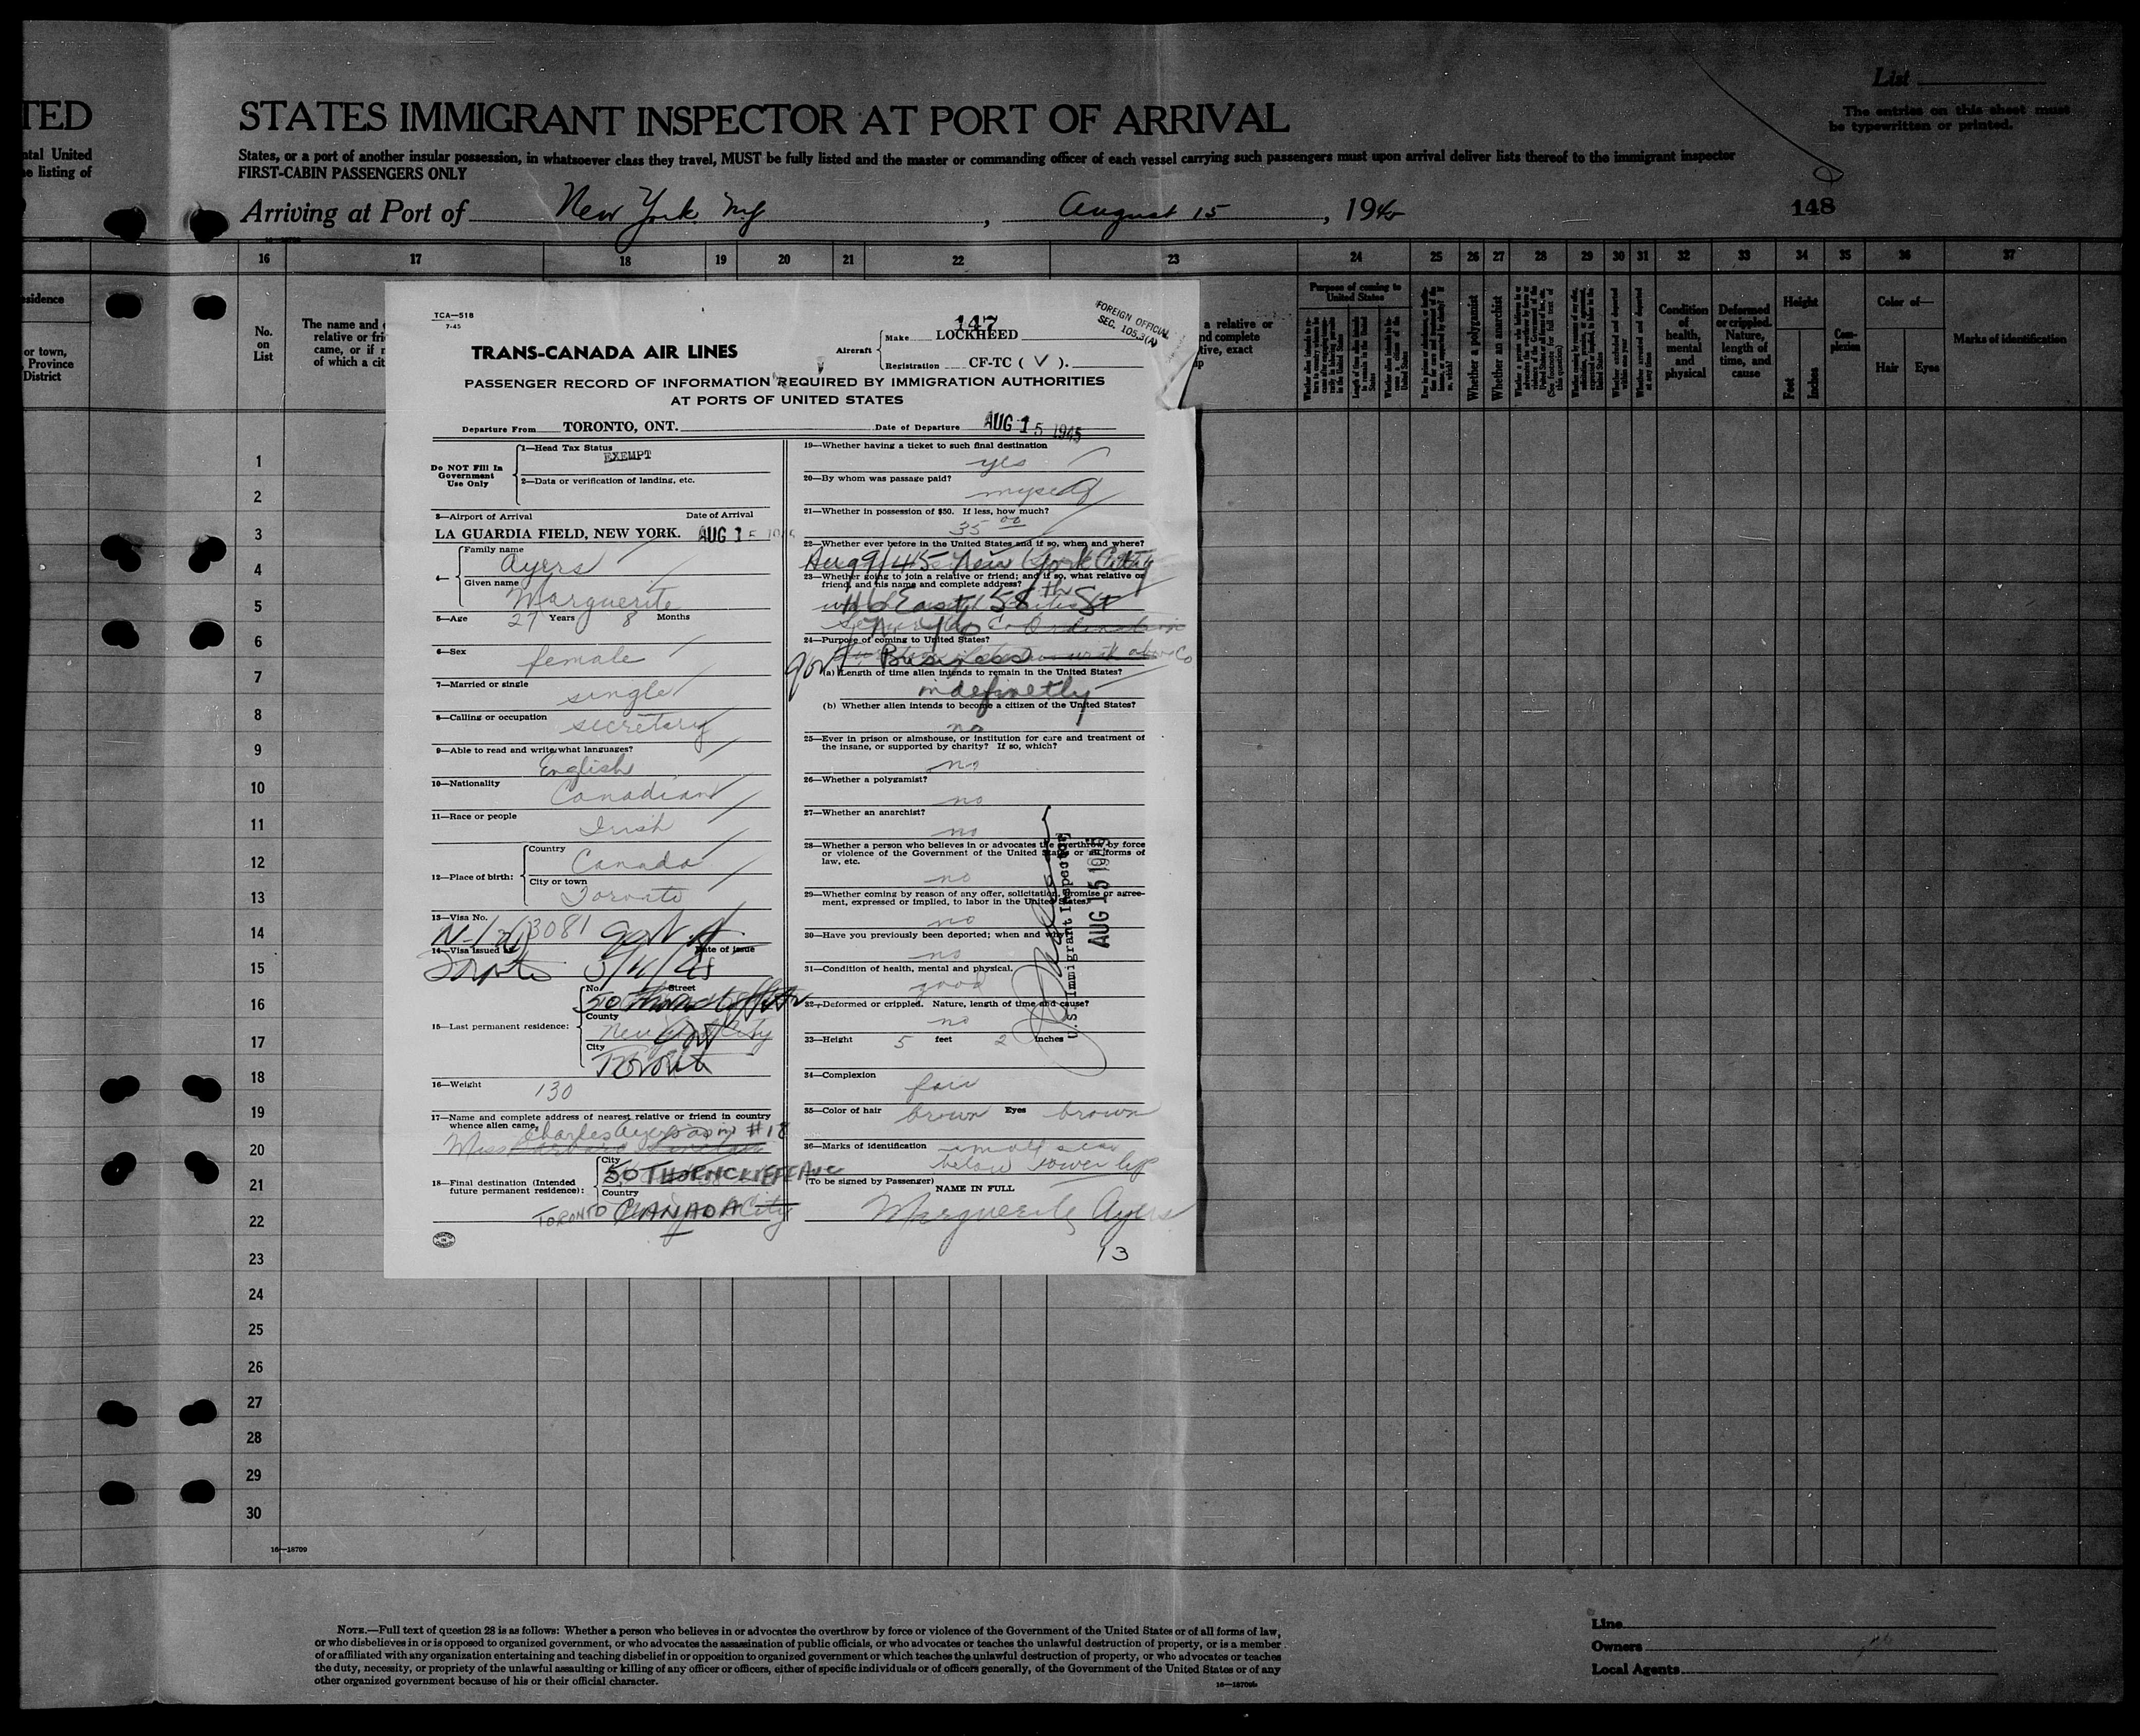 TED
STATES IMMIGRANT INSPECTOR AT PORT OF ARRIVAL
List
The entries on this sheet must
be typewritten or printed.
ntal United
e listing of
States, or a port of another insular possession, in whatsoever class they travel, MUST be fully listed and the master or commanding officer of each vessel carrying such passengers must upon arrival deliver lists thereof to the immigrant inspector
FIRST-CABIN PASSENGERS ONLY
Arriving at Port of New York, NY, August 15, 1945
148
16 17 18 19 20 21 22 23 24 25 26 27 28 29 30 31 32 33 34 35 36 37
esidence
or town,
Province
District
No.
on
List
The name and
relative or fri
came, or if n
of which a cit
a relative or
nd complete
tive, exact
Purpose of coming to
United States
Whether a polygamist
Whether an anarchist
Condition
of
health,
mental
and
physical
Deformed
or crippled.
Nature,
length of
time, and
cause
Height
Feet
Inches
Com-
plexion
Color of—
Hair Eyes
Marks of identification
1
2
3
4
5
6
7
8
9
10
11
12
13
14
15
16
17
18
19
20
21
22
23
24
25
26
27
28
29
30
16—18709
TCA—518
7-45
TRANS-CANADA AIR LINES
147
Aircraft
Make LOCKHEED
Registration CF-TC ( V ).
FOREIGN OFFICIAL
SEC. 105.3(A)
PASSENGER RECORD OF INFORMATION REQUIRED BY IMMIGRATION AUTHORITIES
AT PORTS OF UNITED STATES
Departure From TORONTO, ONT. Date of Departure AUG 15 1945
Do NOT Fill In
Government
Use Only
1—Head Tax Status
EXEMPT
2—Data or verification of landing, etc.
3—Airport of Arrival Date of Arrival
LA GUARDIA FIELD, NEW YORK. AUG 15 1945
4—
Family name
Ayers
Given name
Marguerite
5—Age 27 Years 8 Months
6—Sex female
7—Married or single
single
8—Calling or occupation
secretary
9—Able to read and write what languages?
English
10—Nationality
Canadian
11—Race or people
Irish
12—Place of birth:
Country
Canada
City or town
Toronto
13—Visa No.
3081
14—Visa Issued at Date of Issue
Toronto
15—Last permanent residence:
No. Street
50
County
City
Toronto
16—Weight 130
17—Name and complete address of nearest relative or friend in country
whence alien came.
Charles Ayers as in #18
Miss
18—Final destination (Intended
future permanent residence):
City
50 THORNCLIFFE Ave
Country
TORONTO CANADA
19—Whether having a ticket to such final destination
yes
20—By whom was passage paid?
myself
21—Whether in possession of $50. If less, how much?
35 00
22—Whether ever before in the United States and if so, when and where?
Aug 9/45 New York City
23—Whether going to join a relative or friend; and if so, what relative or
friend, and his name and complete address?
East 58th St
24—Purpose of coming to United States?
Business
(a) Length of time alien intends to remain in the United States?
indefinetly
(b) Whether alien intends to become a citizen of the United States?
no
25—Ever in prison or almshouse, or institution for care and treatment of
the insane, or supported by charity? If so, which?
no
26—Whether a polygamist?
no
27—Whether an anarchist?
no
28—Whether a person who believes in or advocates the overthrow by force
or violence of the Government of the United States or all forms of
law, etc.
no
29—Whether coming by reason of any offer, solicitation, promise or agree-
ment, expressed or implied, to labor in the United States.
no
30—Have you previously been deported; when and why
no
31—Condition of health, mental and physical.
good
32—Deformed or crippled. Nature, length of time and cause?
no
33—Height 5 feet 2 inches
34—Complexion
fair
35—Color of hair brown Eyes brown
36—Marks of identification small scar
below lower lip
(To be signed by Passenger)
NAME IN FULL
Marguerite Ayers
13
U.S. Immigrant Inspector
AUG 15 1945
NOTE.—Full text of question 28 is as follows: Whether a person who believes in or advocates the overthrow by force or violence of the Government of the United States or of all forms of law,
or who disbelieves in or is opposed to organized government, or who advocates the assassination of public officials, or who advocates or teaches the unlawful destruction of property, or is a member
of or affiliated with any organization entertaining and teaching disbelief in or opposition to organized government or which teaches the unlawful destruction of property, or who advocates or teaches
the duty, necessity, or propriety of the unlawful assaulting or killing of any officer or officers, either of specific individuals or of officers generally, of the Government of the United States or of any
other organized government because of his or their official character.
16—18709
Line
Owners
Local Agents